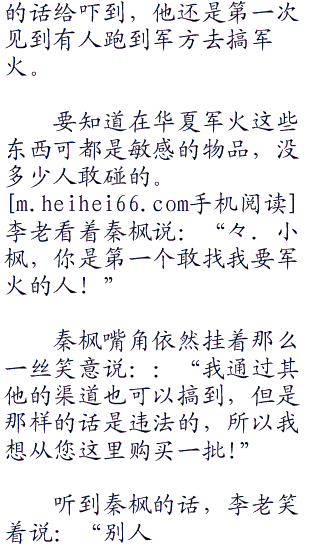 的话给吓到，他还是第一次
见到有人跑到军方去搞军
火。
要知道在华夏军火这些
东西可都是敏感的物品，没
多少人敢碰的。
[m.heihei66.com手机阅读]
李老看着秦枫说：“々．小
枫，你是第一个敢找我要军
火的人！”
秦枫嘴角依然挂着那么
一丝笑意说：：“我通过其
他的渠道也可以搞到，但是
那样的话是违法的，所以我
想从您这里购买一批!”
听到秦枫的话，李老笑
着说：“别人